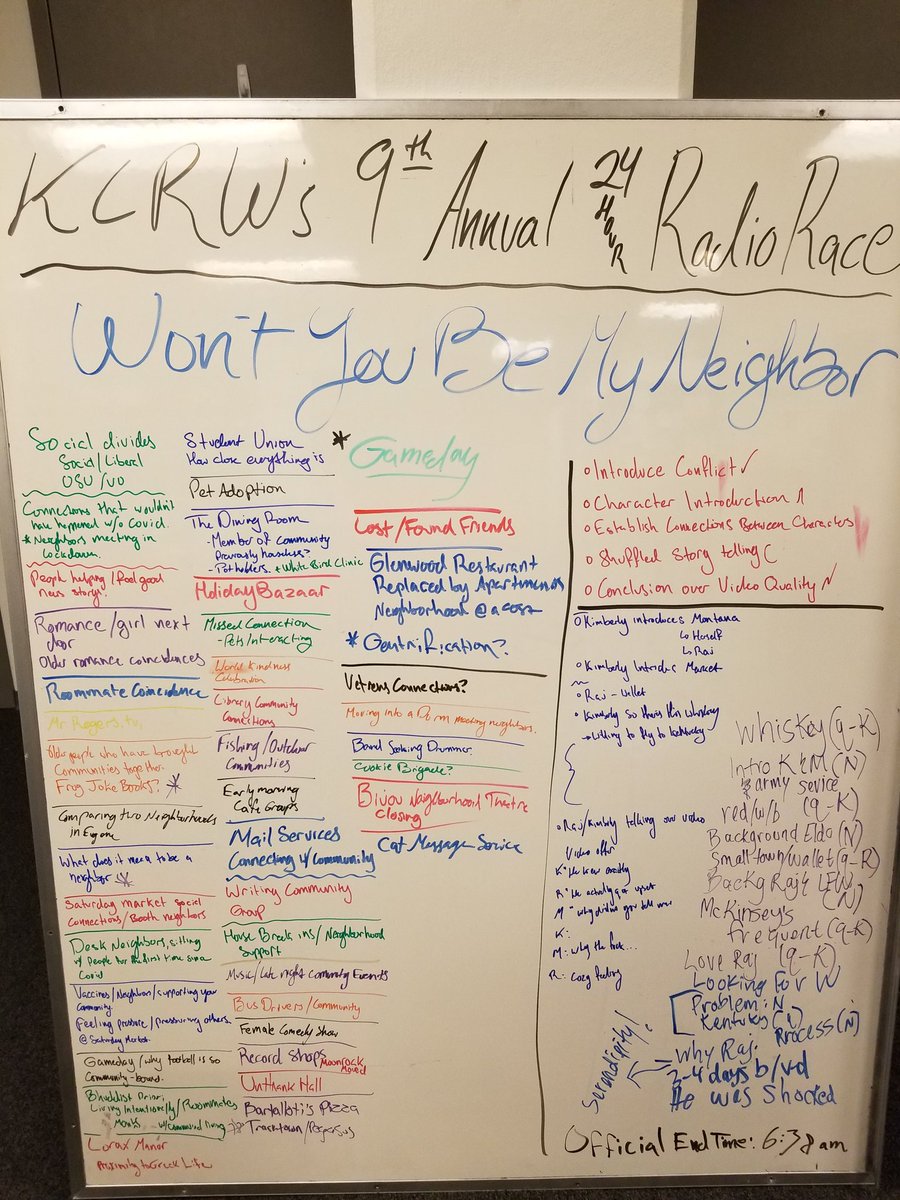 KCRW's 9th Annual 24 HOUR Radio Race
Won't You Be My Neighbor
Social divides
Social/Liberal
OSU/UO
Connections that wouldn't
have happened w/o Covid.
*Neighbors meeting in
lockdown.
People helping/feel good
news storys.
Romance/girl next
door
Older romance coincidences
Roommate Coincidence
Mr Rogers.
Older people who have brought
Communities together.
Frog Joke Books? *
Comparing two Neighborhoods
in Eugene
What does it mean to be a
neighbor *
Saturday market social
Connections/Booth neighbors
Desk Neighbors, sitting
w/ People for the first time since
Covid
Vaccines/Neighbors/supporting your
Community.
Feeling pressure/pressuring others.
@ Saturday Market.
Gameday/why football is so
Community-bound.
Bhuddist Priori
Living Intentionally/Roommates
Monks w/communal living
Lorax Manor
Proximity to Greek Life
Student Union
How close everything is
Pet Adoption
The Dining Room
- Member of Community
Previously homeless?
- Potholders. + White Bird Clinic
Holiday Bazaar
Missed Connection
- Pets/interacting
World Kindness
Celebration
Library Community
Connections
Fishing/Outdoor
Communities
Early morning
Cafe Groups
Mail Services
Connecting w/community
Writing Community
Group
House Break ins/Neighborhood
Support
Music/late night community Events
Bus Drivers/Community
Female Comedy Show
Record Shops Moonrock
Moved
Unthank Hall
Bartalloti's Pizza
* Tracktown/Pegasus
* Gameday
Lost/Found Friends
Glenwood Restaurant
Replaced by Apartments
Neighborhood @ a cost
* Gentrification?
Vetrens Connections?
Moving into a Dorm meeting neighbors.
Band Seeking Drummer.
Cookie Brigade?
Bijou Neighborhood Theatre
closing
Cat Message Service
o Introduce Conflict ✓
o Character Introduction
o Establish Connections Between Characters
o Shuffled Story telling
o Conclusion over Video Quality
o Kimberly introduces Montana
↳ Herself
↳ Raj
o Kimberly Introduc Market
o Raj - Wallet
o Kimberly so there this whiskey
→ willing to fly to kentucky
o Raj/Kimberly telling over video
Video offer
K: He knew exactly
R: He actually got upset
M: "why didn't you tell me
K:
M: why the
R: Cozy feeling
Whiskey (q-K)
Intro K+M (N)
& army sevice
red/w/b (q-K)
Background Eldo (N)
Small town/wallet (q-R)
Backg Raj
(N)
McKinsey's
frequent (q-K)
Love Raj (q-K)
Looking For W
Problem: N
Kentucky (1) Process (N)
Why Raj.
3-4 days b/vd
He was Shocked
Serendipity!
Official End Time: 6:38 am